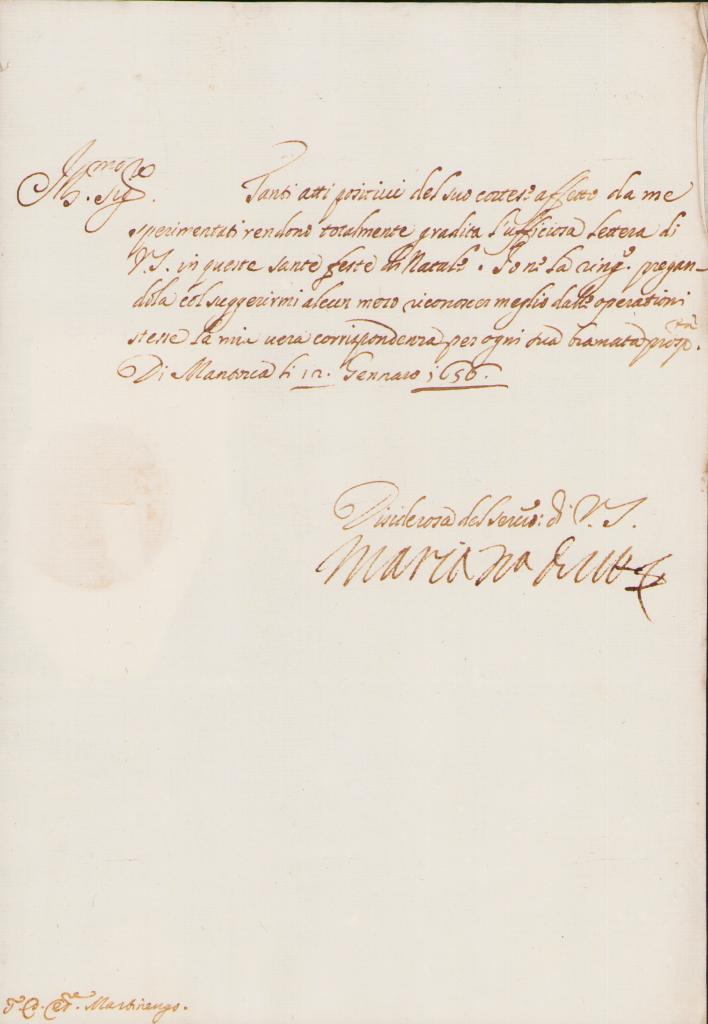 Ill.mo Sig.re Tanti atti positivi del suo cortes.o affetto da me
sperimentati rendono totalmente gradita l'ufficiosa lettera di
V.S. in queste sante feste di Natale. Io ne la ring.o pregan-
dola col suggerirmi alcun mezo riconoscer meglio dalle operationi
stesse la mia vera corrispondenza per ogni sua bramata prosp.tà.
Di Mantova li 12. Gennaro 1656.
Disiderosa del servi.o: di V.S.
Maria
Martinengo.